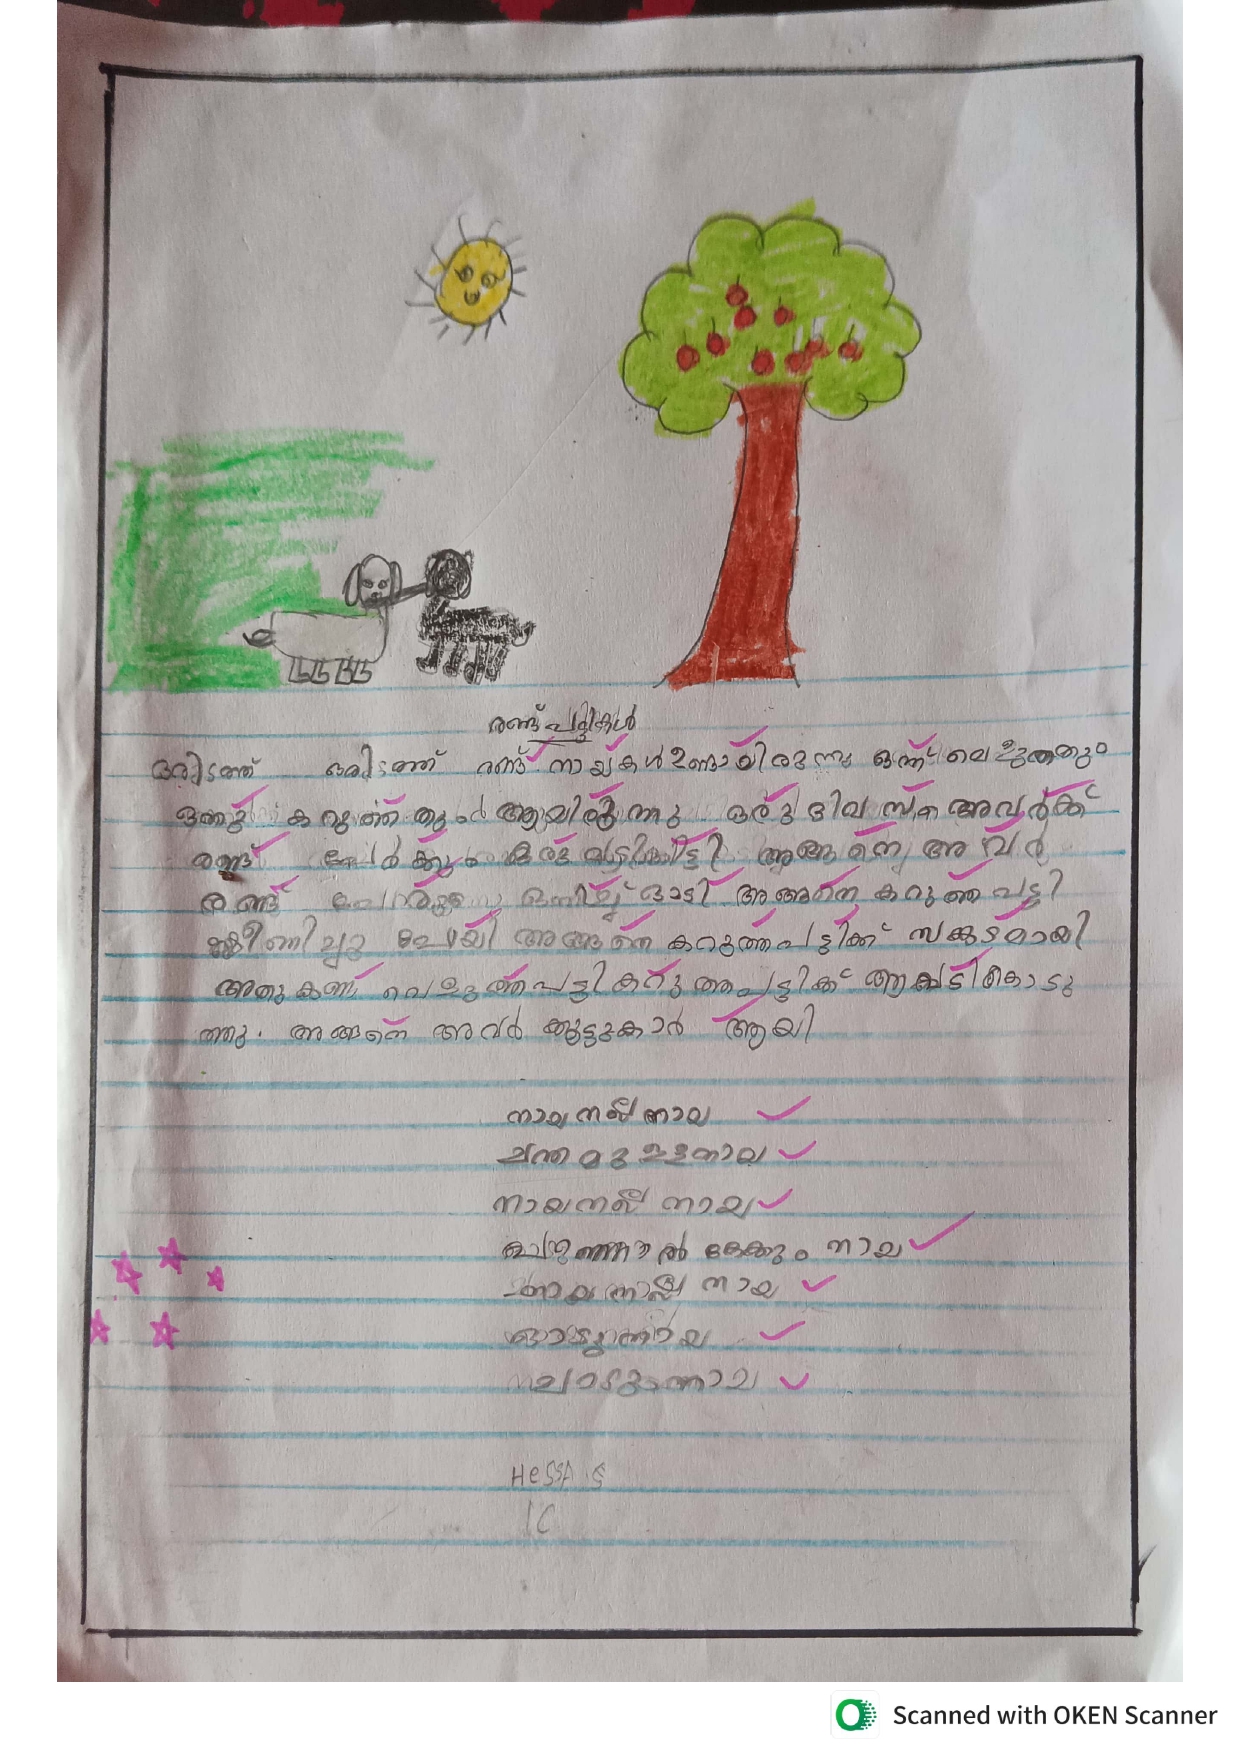 രണ്ട് പട്ടികൾ
ഒരിടത്ത് ഒരിടത്ത് രണ്ട് നായ്കൾ ഉണ്ടായിരുന്നു ഒന്ന് വെളുത്തതും
കറുത്തതും ആയിരുന്നു ഒരു ദിവസം അവർക്ക്
രണ്ട് പേർക്കും ഒരു കിട്ടി അങ്ങനെ അവർ
രണ്ട് ഒന്നിച്ച് ഓടി അങ്ങനെ കറുത്ത പട്ടി
പോയി അങ്ങനെ കറുത്തപട്ടിക്ക് സങ്കടമായി
അതു കണ്ട് വെളുത്ത പട്ടി കറുത്തപട്ടിക്ക് കൊടു
ത്തു. അങ്ങനെ അവർ കൂട്ടുകാർ ആയി
നായ നല്ല നായ
ചന്തമുള്ള നായ
നായ നല്ല നായ
പറഞ്ഞാൽ കേക്കും നായ
നായ നല്ല നായ
ഓടുന്ന നായ
ചാടും നായ
HeSSA S
1 C
Scanned with OKEN Scanner